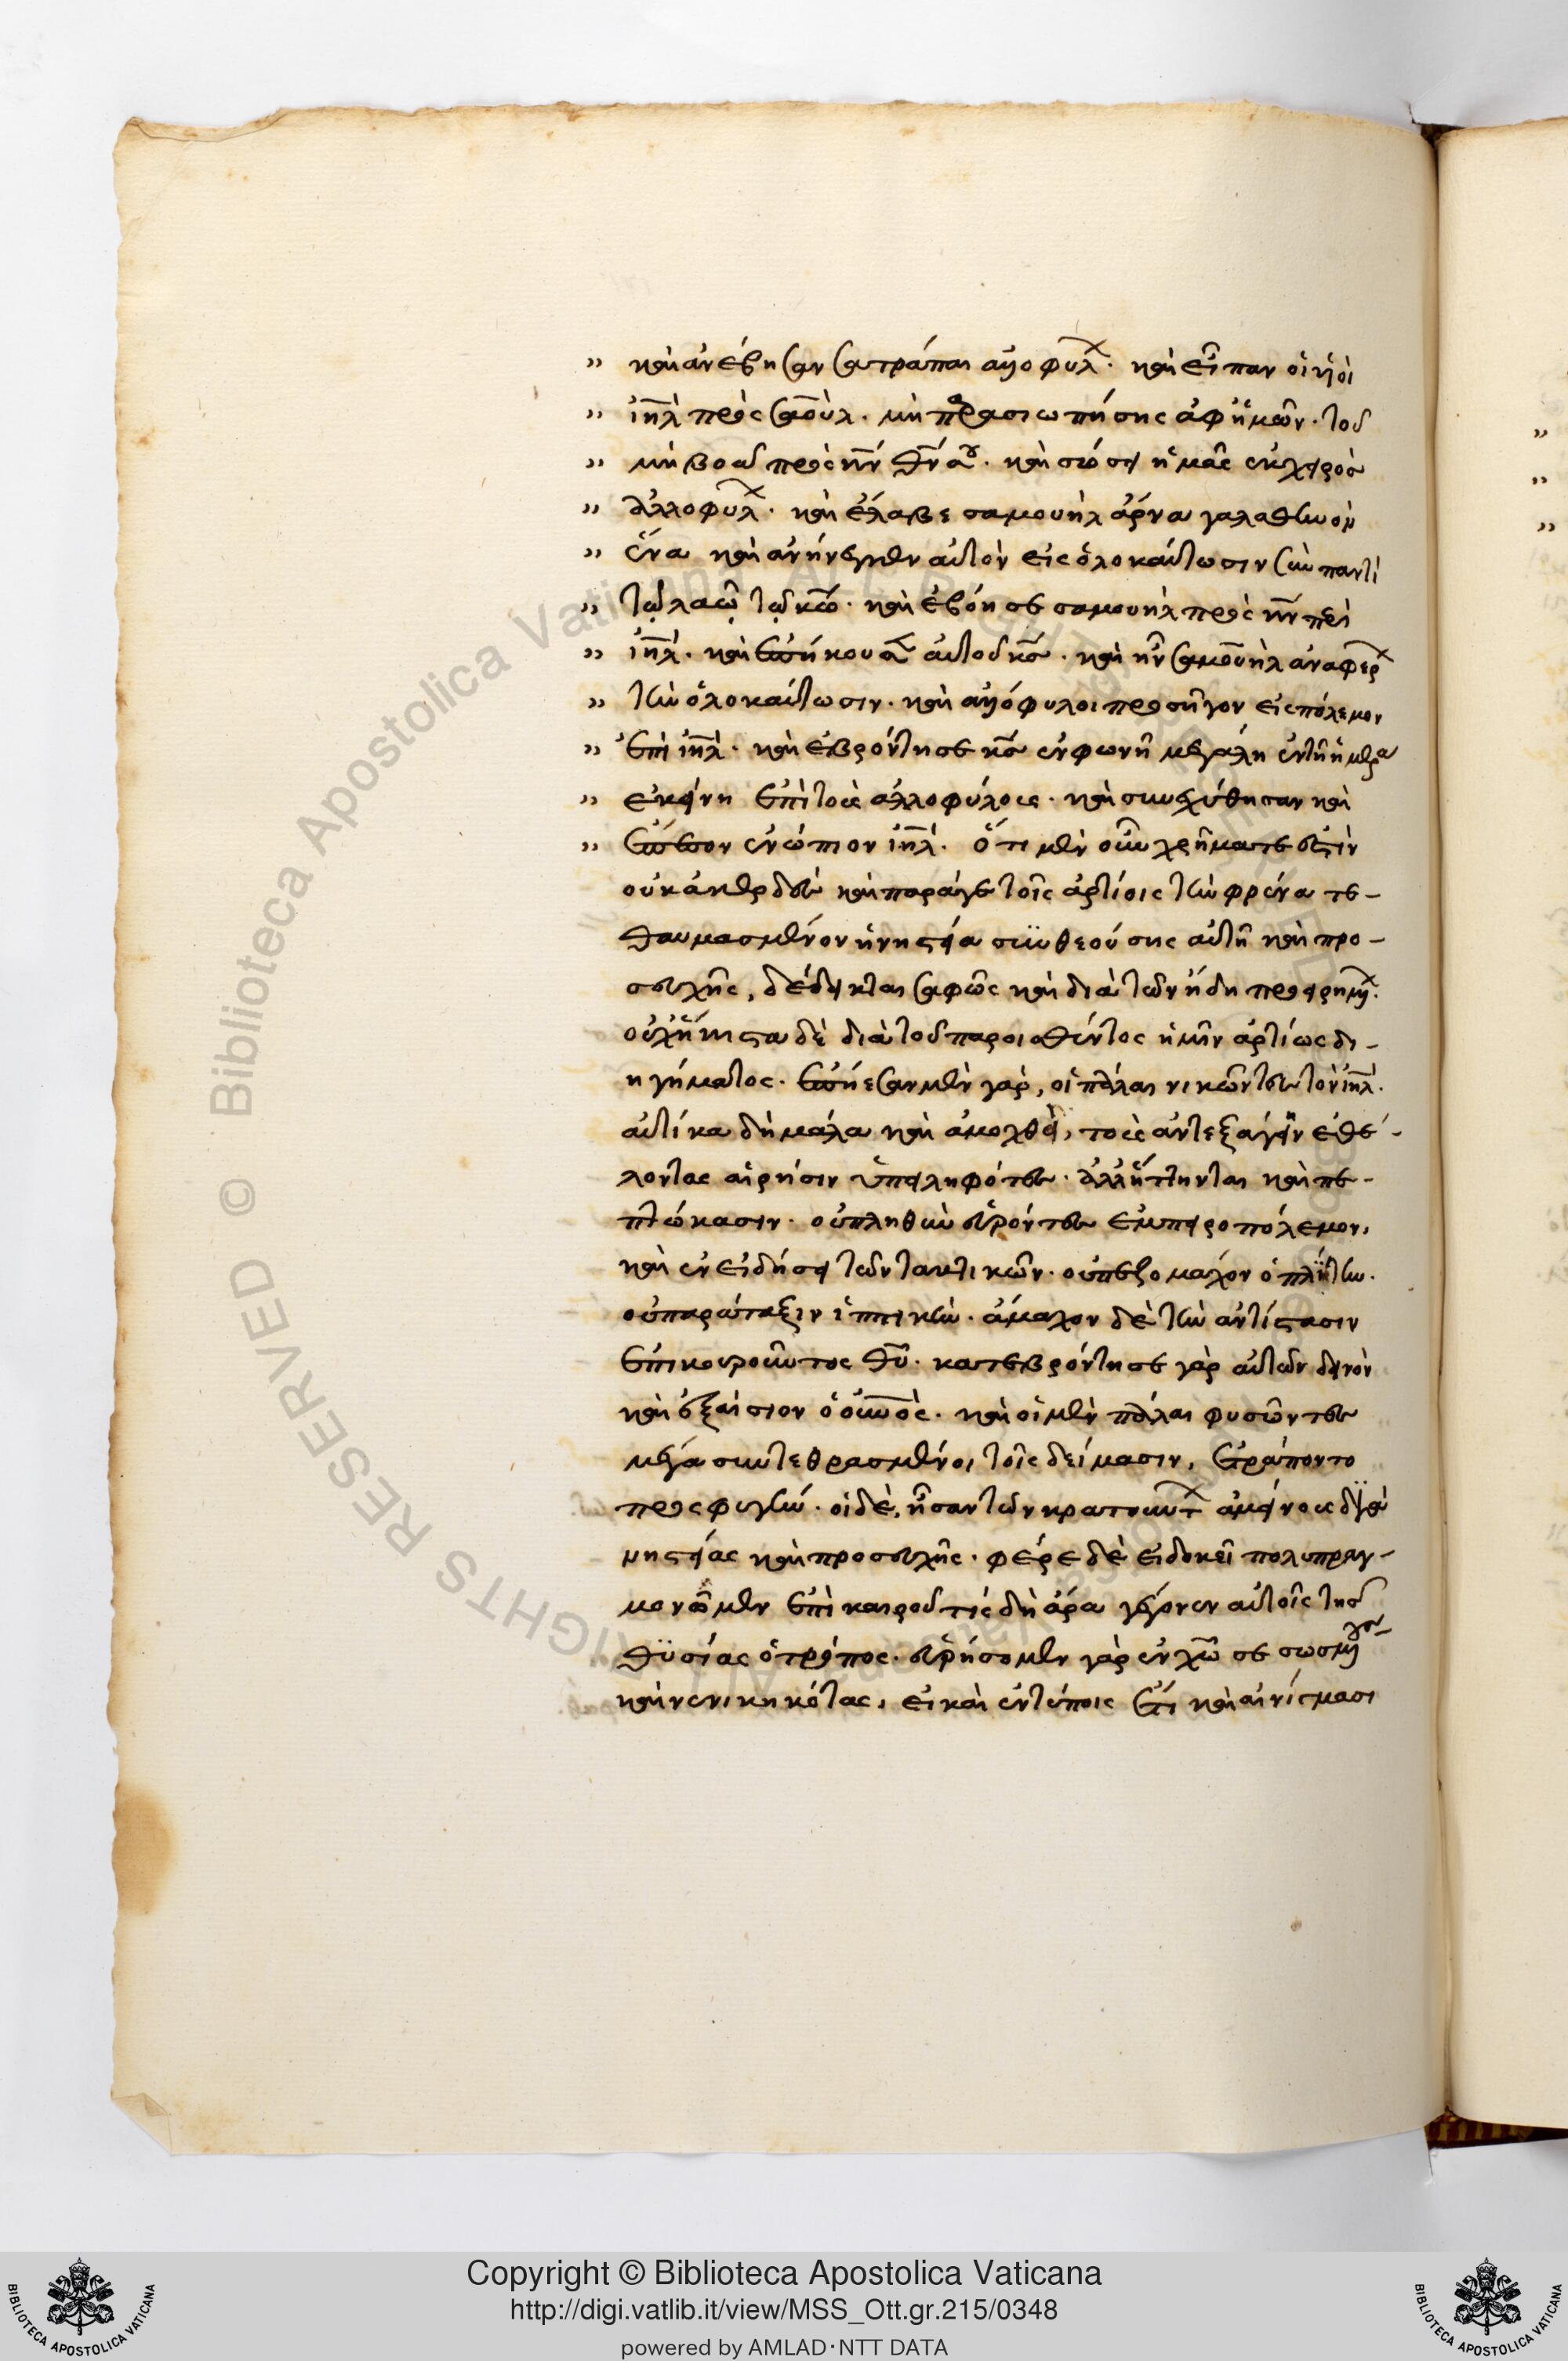 ” καὶ ἀνέβησαν σατράπαι ἀλλοφυλ. καὶ εἶπαν οἱ υἱοὶ
” ιηλ πρὸς σαοὺλ. μὴ παρασιωπήσης ἀφ ἡμῶν. τοῦ
” μὴ βοᾶν πρὸς κν θν σου. καὶ σώσει ἡμᾶς ἐκ χειρὸς
” ἀλλοφυλ. καὶ ἔλαβε σαμουὴλ ἄρνα γαλαθηνὸν
” ἕνα καὶ ἀνήνεγκεν αὐτὸν εἰς ὁλοκαύτωσιν σὺν παντὶ
” τῶ λαῶ τῶ κω. καὶ ἐβόησε σαμουὴλ πρὸς κν περὶ
” ιηλ. καὶ ἐπήκουσεν αὐτοῦ κς. καὶ ἦν σαμουὴλ ἀναφέρ
” τὴν ὁλοκαύτωσιν. καὶ ἀλλόφυλοι προσῆγον εἰς πόλεμον
” ἐπὶ ιηλ. καὶ ἐβρόντησε κς ἐν φωνῆ μεγάλη ἐν τῆ ἡμέρα
” ἐκείνη ἐπὶ τοὺς ἀλλοφύλους. καὶ συνεχύθησαν καὶ
” ἔπεσον ἐνώπιον ιηλ. ὅτι μὲν οὖν χρῆμά τε ἐστὶν
οὐκ ἀκερδὲς καὶ παρά γε τοῖς ἀρτίοις τὴν φρένα τε-
θαυμασμένον ἡ νηστεία συνθεούσης αὐτῆ καὶ προ-
σευχῆς, δέδεικται σαφῶς καὶ διὰ τῶν ἤδη προειρημ.
οὐχ ἥκιστα δὲ διὰ τοῦ παροισθέντος ἡμῖν ἀρτίως δι-
ηγήματος. ἐπήεσαν μὲν γὰρ, οἱ πάλαι νικῶντες τὸν ιηλ.
αὐτίκα δὴ μάλα καὶ ἀμοχθεὶ, τοὺς ἀντεξάγειν ἐθέ-
λοντας αἱρήσειν ὑπειληφότες. ἀλλ ἥττηνται καὶ πε-
πτώκασιν. οὐ πληθὺν εὑρόντες ἐμπειροπόλεμον,
καὶ ἐν εἰδήσει τῶν τακτικῶν. οὐ πεζομάχον ὁπλίτην.
οὐ παράταξιν ἱππικὴν. ἄμαχον δὲ τὴν ἀντίστασιν
ἐπικουροῦντος θυ. κατεβρόντησε γὰρ αὐτῶν δεινὸν
καὶ ἐξαίσιον ὁ ουνος. καὶ οἱ μὲν πάλαι φυσῶντες
μέγα συντεθρασμένοι τοῖς δείμασιν, ἐτράποντο
πρὸς φυγὴν. οἱ δὲ, ἦσαν τῶν κρατουντ ἀμείνους διὰ
νηστείας καὶ προσευχῆς. φέρε δὲ εἰ δοκεῖ πολυπραγ-
μονῶμεν ἐπὶ καιροῦ τίς δὴ ἄρα γέγονεν αὐτοῖς τῆς
θυσίας ὁ τρόπος. εὑρήσομεν γὰρ ἐν χω σεσωσμένους
καὶ νενικηκότας, εἰ καὶ ἐν τύποις ἔτι καὶ αἰνίγμασι
Copyright © Biblioteca Apostolica Vaticana
http://digi.vatlib.it/view/MSS_Ott.gr.215/0348
powered by AMLAD·NTT DATA